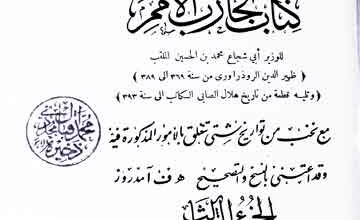 كتاب تجارب الأمم
للوزير أبي شجاع محمد بن الحسين الملقب
( ظهير الدين الروذراوري من سنة ٣٦٩ الى ٣٨٩ )
( وتليه قطعة من تاريخ هلال الصابي الكاتب الى سنة ٣٩٣ )
مع نخب من تواريخ شتى تتعلق بالأمور المذكورة فيه
وقد اعتنى بالنسخ والتصحيح ه. ف. آمدروز
الجزء الثالث